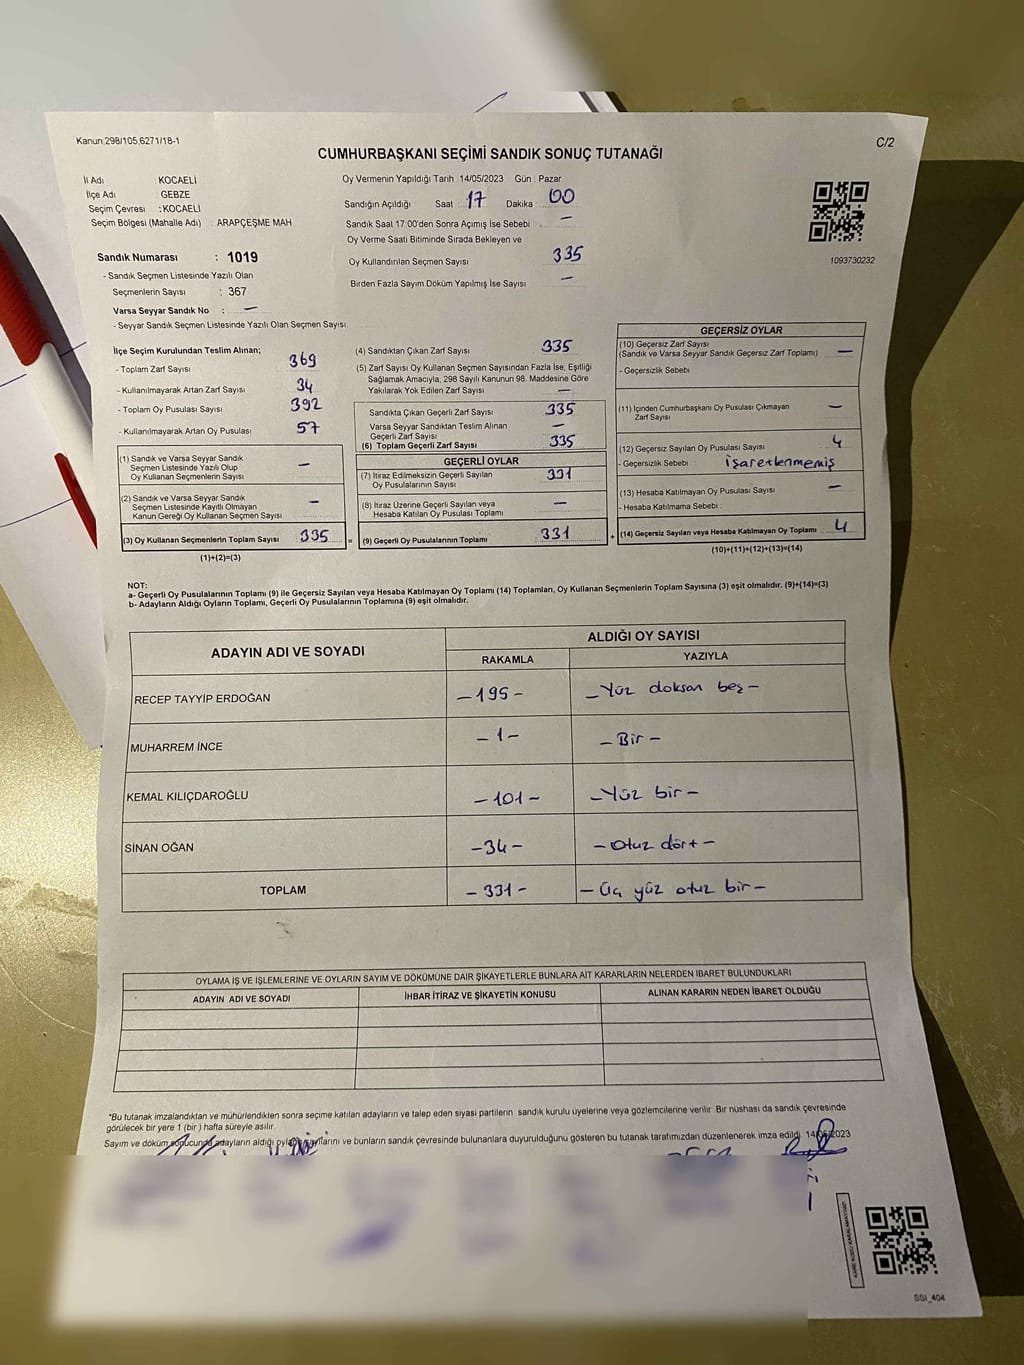 Kanun:298/105,6271/18-1
C/2
CUMHURBAŞKANI SEÇİMİ SANDIK SONUÇ TUTANAĞI
İl Adı : KOCAELİ
İlçe Adı : GEBZE
Seçim Çevresi : KOCAELİ
Seçim Bölgesi (Mahalle Adı) : ARAPÇEŞME MAH
Oy Vermenin Yapıldığı Tarih :14/05/2023 Gün : Pazar
Sandığın Açıldığı Saat : 17 Dakika : 00
Sandık Saat 17:00'den Sonra Açımış İse Sebebi : —
Oy Verme Saati Bitiminde Sırada Bekleyen ve
Oy Kullandırılan Seçmen Sayısı 335
Birden Fazla Sayım Döküm Yapılmış İse Sayısı —
1093730232
Sandık Numarası : 1019
- Sandık Seçmen Listesinde Yazılı Olan
Seçmenlerin Sayısı : 367
Varsa Seyyar Sandık No : —
- Seyyar Sandık Seçmen Listesinde Yazılı Olan Seçmen Sayısı:
İlçe Seçim Kurulundan Teslim Alınan;
- Toplam Zarf Sayısı 369
- Kullanılmayarak Artan Zarf Sayısı 34
- Toplam Oy Pusulası Sayısı 392
- Kullanılmayarak Artan Oy Pusulası 57
(1) Sandık ve Varsa Seyyar Sandık
Seçmen Listesinde Yazılı Olup
Oy Kullanan Seçmenlerin Sayısı —
(2) Sandık ve Varsa Seyyar Sandık
Seçmen Listesinde Kayıtlı Olmayan
Kanun Gereği Oy Kullanan Seçmen Sayısı —
(3) Oy Kullanan Seçmenlerin Toplam Sayısı 335 =
(1)+(2)=(3)
(4) Sandıktan Çıkan Zarf Sayısı 335
(5) Zarf Sayısı Oy Kullanan Seçmen Sayısından Fazla İse, Eşitliği
Sağlamak Amacıyla, 298 Sayılı Kanunun 98. Maddesine Göre
Yakılarak Yok Edilen Zarf Sayısı —
Sandıkta Çıkan Geçerli Zarf Sayısı 335
Varsa Seyyar Sandıktan Teslim Alınan
Geçerli Zarf Sayısı —
(6) Toplam Geçerli Zarf Sayısı 335
GEÇERLİ OYLAR
(7) İtiraz Edilmeksizin Geçerli Sayılan
Oy Pusulalarının Sayısı 331
(8) İtiraz Üzerine Geçerli Sayılan veya
Hesaba Katılan Oy Pusulası Toplamı —
(9) Geçerli Oy Pusulalarının Toplamı 331 +
GEÇERSİZ OYLAR
(10) Geçersiz Zarf Sayısı
(Sandık ve Varsa Seyyar Sandık Geçersiz Zarf Toplamı) —
- Geçersizlik Sebebi
(11) İçinden Cumhurbaşkanı Oy Pusulası Çıkmayan
Zarf Sayısı —
(12) Geçersiz Sayılan Oy Pusulası Sayısı 4
- Geçersizlik Sebebi işaretlenmemiş
(13) Hesaba Katılmayan Oy Pusulası Sayısı —
- Hesaba Katılmama Sebebi :
(14) Geçersiz Sayılan veya Hesaba Katılmayan Oy Toplamı 4
(10)+(11)+(12)+(13)=(14)
NOT:
a- Geçerli Oy Pusulalarının Toplamı (9) ile Geçersiz Sayılan veya Hesaba Katılmayan Oy Toplamı (14) Toplamları, Oy Kullanan Seçmenlerin Toplam Sayısına (3) eşit olmalıdır. (9)+(14)=(3)
b- Adayların Aldığı Oyların Toplamı, Geçerli Oy Pusulalarının Toplamına (9) eşit olmalıdır.
ADAYIN ADI VE SOYADI
ALDIĞI OY SAYISI
RAKAMLA YAZIYLA
RECEP TAYYİP ERDOĞAN -195- -Yüz doksan beş-
MUHARREM İNCE -1- -Bir-
KEMAL KILIÇDAROĞLU -101- -Yüz bir-
SİNAN OĞAN -34- -Otuz dört-
TOPLAM -331- -Üç yüz otuz bir-
OYLAMA İŞ VE İŞLEMLERİNE VE OYLARIN SAYIM VE DÖKÜMÜNE DAİR ŞİKAYETLERLE BUNLARA AİT KARARLARIN NELERDEN İBARET BULUNDUKLARI
ADAYIN ADI VE SOYADI İHBAR İTİRAZ VE ŞİKAYETİN KONUSU ALINAN KARARIN NEDEN İBARET OLDUĞU
*Bu tutanak imzalandıktan ve mühürlendikten sonra seçime katılan adayların ve talep eden siyasi partilerin sandık kurulu üyelerine veya gözlemcilerine verilir. Bir nüshası da sandık çevresinde
görülecek bir yere 1 (bir) hafta süreyle asılır.
Sayım ve döküm sonucunda adayların aldığı oyların sayılarını ve bunların sandık çevresinde bulunanlara duyurulduğunu gösteren bu tutanak tarafımızdan düzenlenerek imza edildi. 14/05/2023
SSI_404